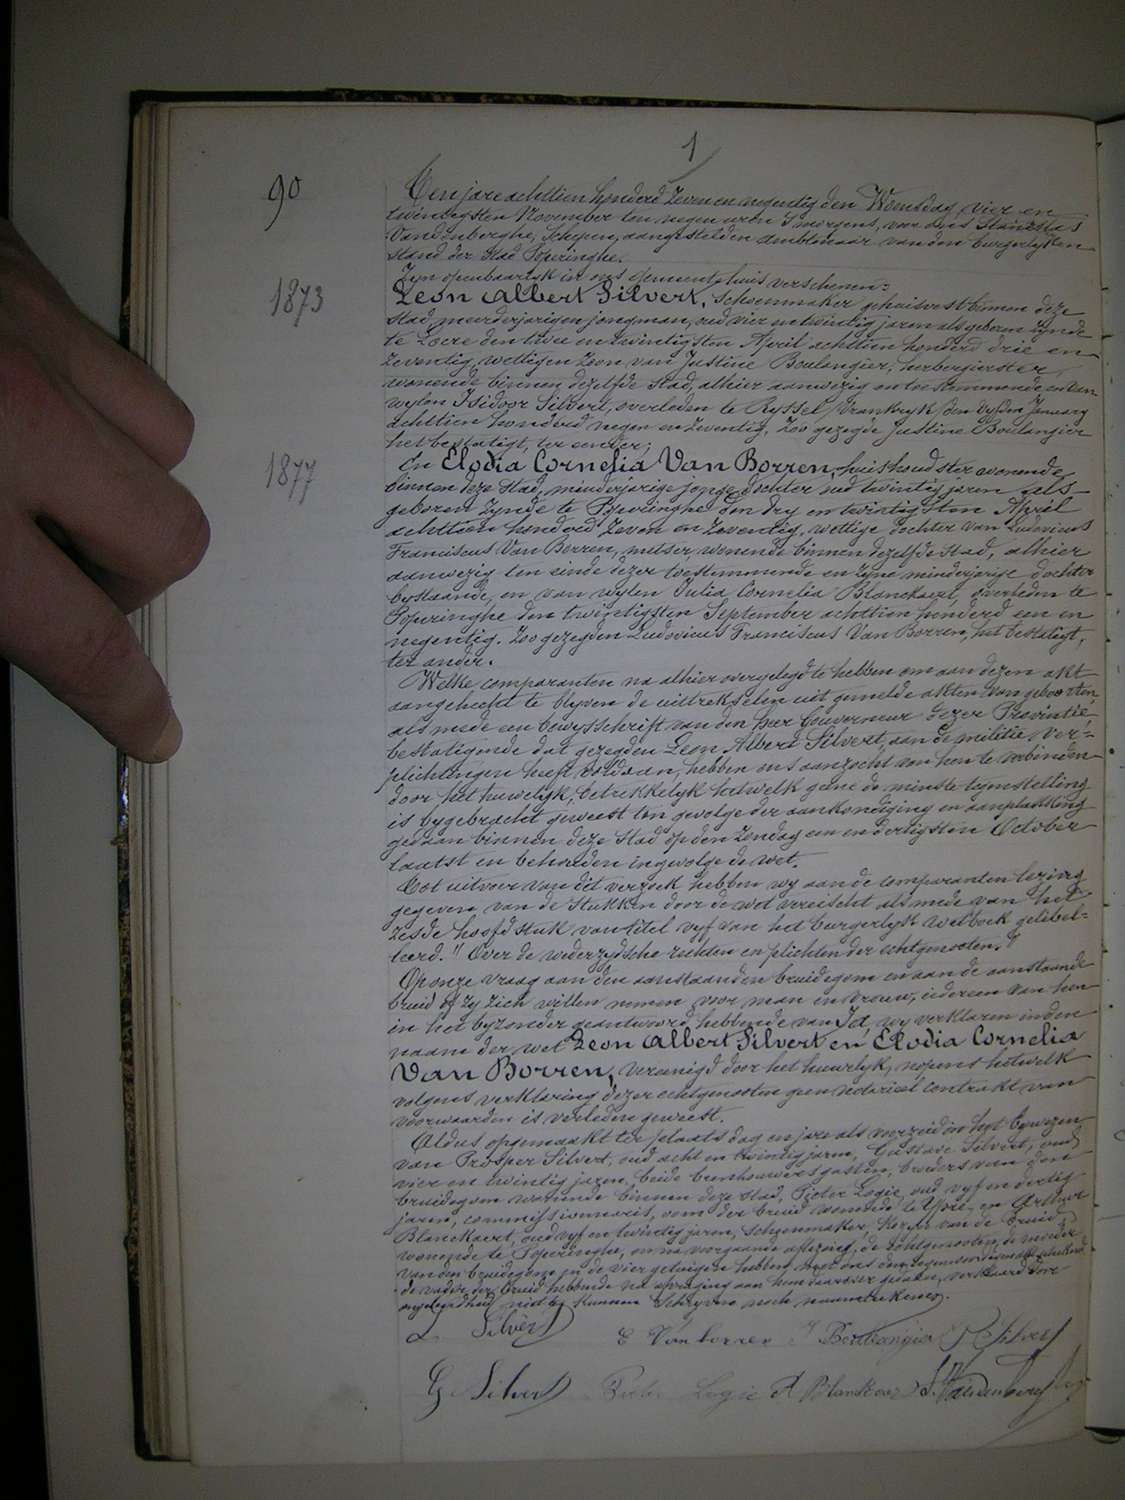 1
90
Ten jare achttien honderd zeven en negentig den Woensdag vier en
twintigsten November ten negen uren 's morgens, voor ons Stanislas
Vandenberghe, Schepen, aangestelden ambtenaar van den burgerlyken
stand der stad Poperinghe.
Zyn openbaarlyk in ons gemeentehuis verschenen:
1873
Leon Albert Silvert, schoenmaker gehuisvest binnen deze
stad, meerderjarigen jongman, oud vier en twintig jaren als geboren zynde
te Locre den twee en twintigsten April achttien honderd drie en
zeventig, wettigen zoon van Justine Boulangier, herbergierster,
wonende binnen dezelfde stad, alhier aanwezig en toestemmende en van
wylen Isidoor Silvert, overleden te Ryssel /Frankryk/ den vyfden January
achttien honderd negen en zeventig. Zoo gezegde Justine Boulangier
het bestatigt, ter eender;
1877
En Elodia Cornelia Van Borren, huishoudster wonende
binnen deze stad, minderjarige jonge dochter oud twintig jaren als
geboren zynde te Poperinghe den dry en twintigsten April
achttien honderd zeven en zeventig, wettige dochter van Ludovicus
Franciscus Van Borren, metser, wonende binnen dezelfde stad, alhier
aanwezig ten einde dezer toestemmende en zyne minderjarige dochter
bystaande, en van wylen Julia Cornelia Blanckaert, overleden te
Poperinghe den twintigsten September achttien honderd een en
negentig. Zoo gezegden Ludovicus Franciscus Van Borren, het bestatigt,
ter ander.
Welke comparanten na alhier overgelegd te hebben om aan dezen akt
aangehecht te blyven de uittrekselen uit gemelde akten van geboorten,
als mede een bewysschrift van den heer Gouverneur dezer Provintie,
bestatigende dat gezegden Leon Albert Silvert, aan de militie ver=
plichtingen heeft voldaan, hebben ons aanzocht van hen te verbinden
door het huwelyk, betrekkelyk hetwelk geene de minste tegenstelling
is bygebracht geweest ten gevolge der aankondiging en aanplakking
gedaan binnen deze stad op den Zondag een en dertigsten October
laatst en behouden ingevolge de wet.
Tot uitvoer van dit verzoek hebben wy aan de comparanten lezing
gegeven van de stukken door de wet vereischt als mede van het
zesde hoofdstuk van titel vyf van het burgerlyk wetboek gelibel=
leerd. "Over de wederzydsche rechten en plichten der echtgenooten."
Op onze vraag aan den aanstaanden bruidegom en aan de aanstaande
bruid of zy zich willen nemen voor man en vrouw, iedereen van hen
in het byzonder geantwoord hebbende van Ja, wy verklaren in den
naam der wet Leon Albert Silvert en Elodia Cornelia
Van Borren, vereenigd door het huwelyk, nopens hetwelk
volgens verklaring dezer echtgenooten geen notarieel contrakt van
voorwaarden is verleden geweest.
Aldus opgemaakt ter plaats dag en jare als voorzeid in het bywezen
van Prosper Silvert, oud acht en twintig jaren, Gustave Silvert, oud
vier en twintig jaren, beide beenhouwersgasten, broeders van den
bruidegom wonende binnen deze stad, Pieter Logie, oud vyf en dertig
jaren, commissionnaris, oom der bruid wonende te Ypre, en Arthur
Blanckaert, oud vyf en twintig jaren, schoenmaker, kozyn van de bruid,
wonende te Poperinghe, en na voorgaande aflezing, de echtgenooten, de moeder
van den bruidegom en de vier getuigen hebben met ons den tegenwoordigen akt geteekend,
de vader der bruid hebbende na afvraging aan hem daarover gedaan, verklaard door
ongeleerdheid niet te kunnen schryven noch naamteekenen.
L Silvert E Van borren J Boulangier P Silvert
G Silvert Pieter Logie A Blanckaert S. Vandenberghe